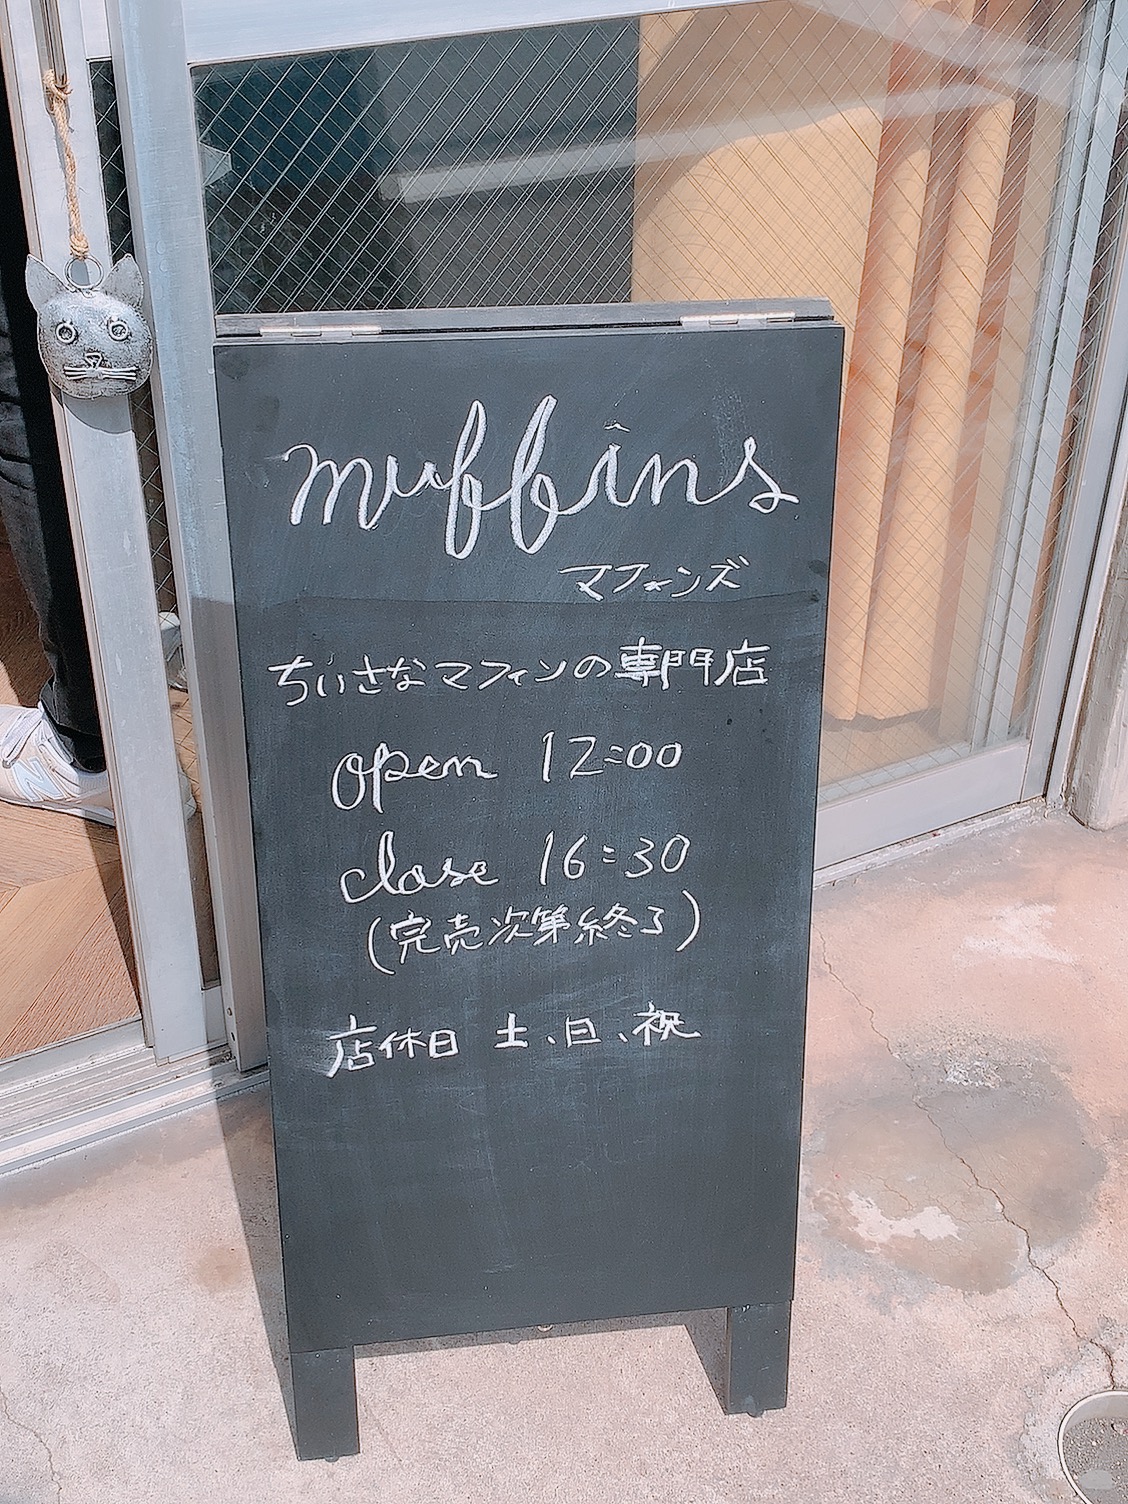 muffins
マフィンズ
ちいさなマフィンの専門店
open 12:00
close 16:30
(完売次第終了)
店休日 土、日、祝
N